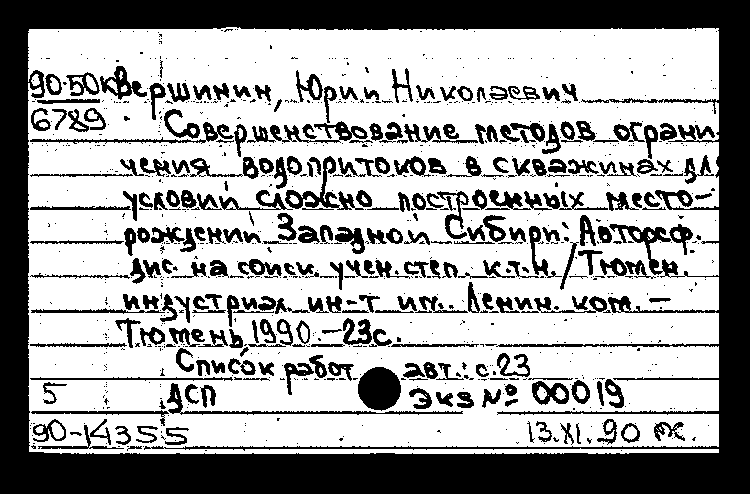 90-50к Вершинин, Юрий Николаевич
6789 Совершенствование методов ограни-
чения водопритоков в скважинах для
условий сложно построенных место-
рождений Западной Сибири: Автореф.
дис. на соиск. учен. степ. к.т.н. / Тюмен.
индустриал. ин-т им. Ленин. ком. —
Тюмень, 1990. – 23 с.
Список работ авт.: с. 23
5 ДСП Экз № 00019
90-14355 13.XI.90